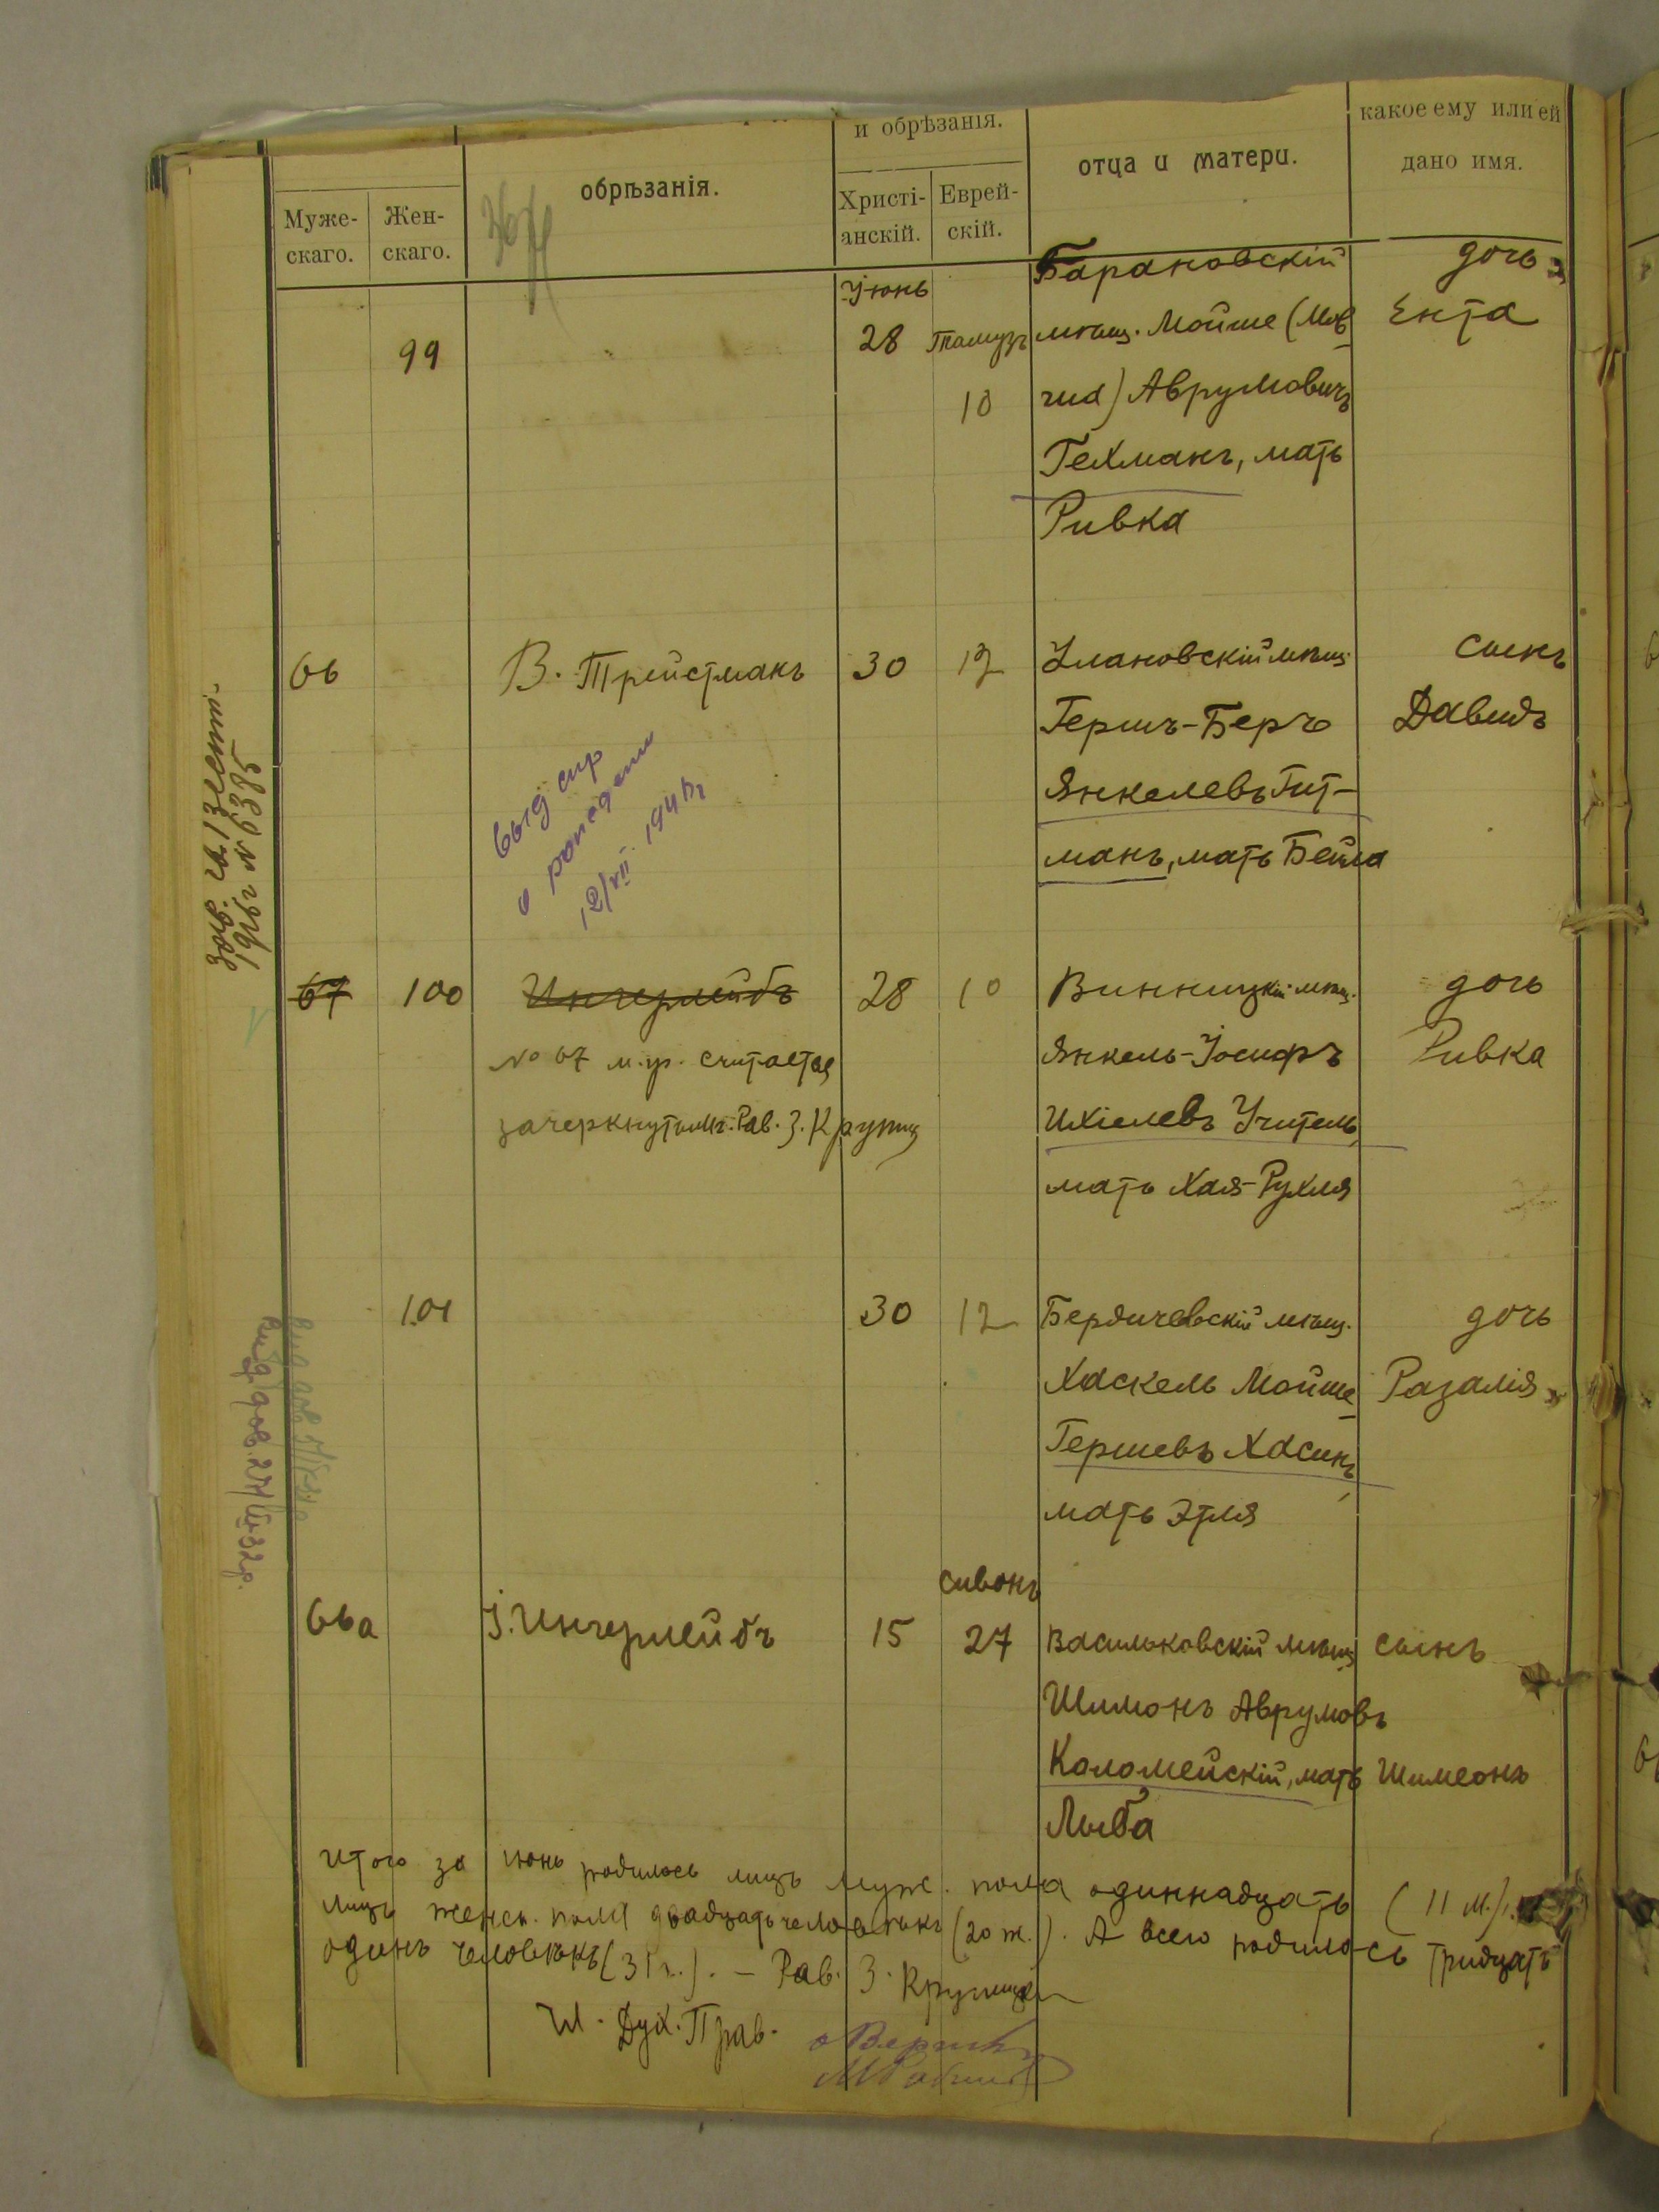 и обрѣзанія.
какое ему или ей
обрѣзанія.
отца и матери.
дано имя.
Муже-
скаго.
Жен-
скаго.
Христі-
анскій.
Еврей-
скій.
Іюнь
Барановскій
дочь
99
28
Тамузъ
мѣщ. Мойше (Мов
Ента
10
ша) Аврумовичъ
Гехманъ, мать
Ривка
66
В. Тройстманъ
30
12
Улановскій мѣщ.
сынъ
Гершъ-Беръ
Давидъ
Янкелевъ Гит-
манъ, мать Бейла
выд спр
о рожден
12/VII 194
№ 6385
67
100
Ингерлейбъ
28
10
Винницкій мѣщ.
дочь
№ 67 м.р. считается
Янкель-Іосифъ
Ривка
зачеркнутымъ. Рав. З. Крупник
Ихіелевъ Учитель,
мать Хая-Рухля
101
30
12
Бердичевскій мѣщ.
дочь
Хаскель Мойше
Розалія
Гершевъ Хасинъ,
мать Этля
сиванъ
66а
І. Ингерлейбъ
15
27
Васильковскій мѣщ
сынъ
Шимонъ Аврумовъ
Коломейскій, мать
Шимеонъ
Лыба
Итого за іюнь родилось лицъ муж. пола одиннадцать (11 м.),
лицъ женск. пола двадцать человѣкъ (20 ж.). А всего родилось тридцать
одинъ человѣкъ (31 ч.). — Рав. З. Крупник
Чл. Дух. Прав.